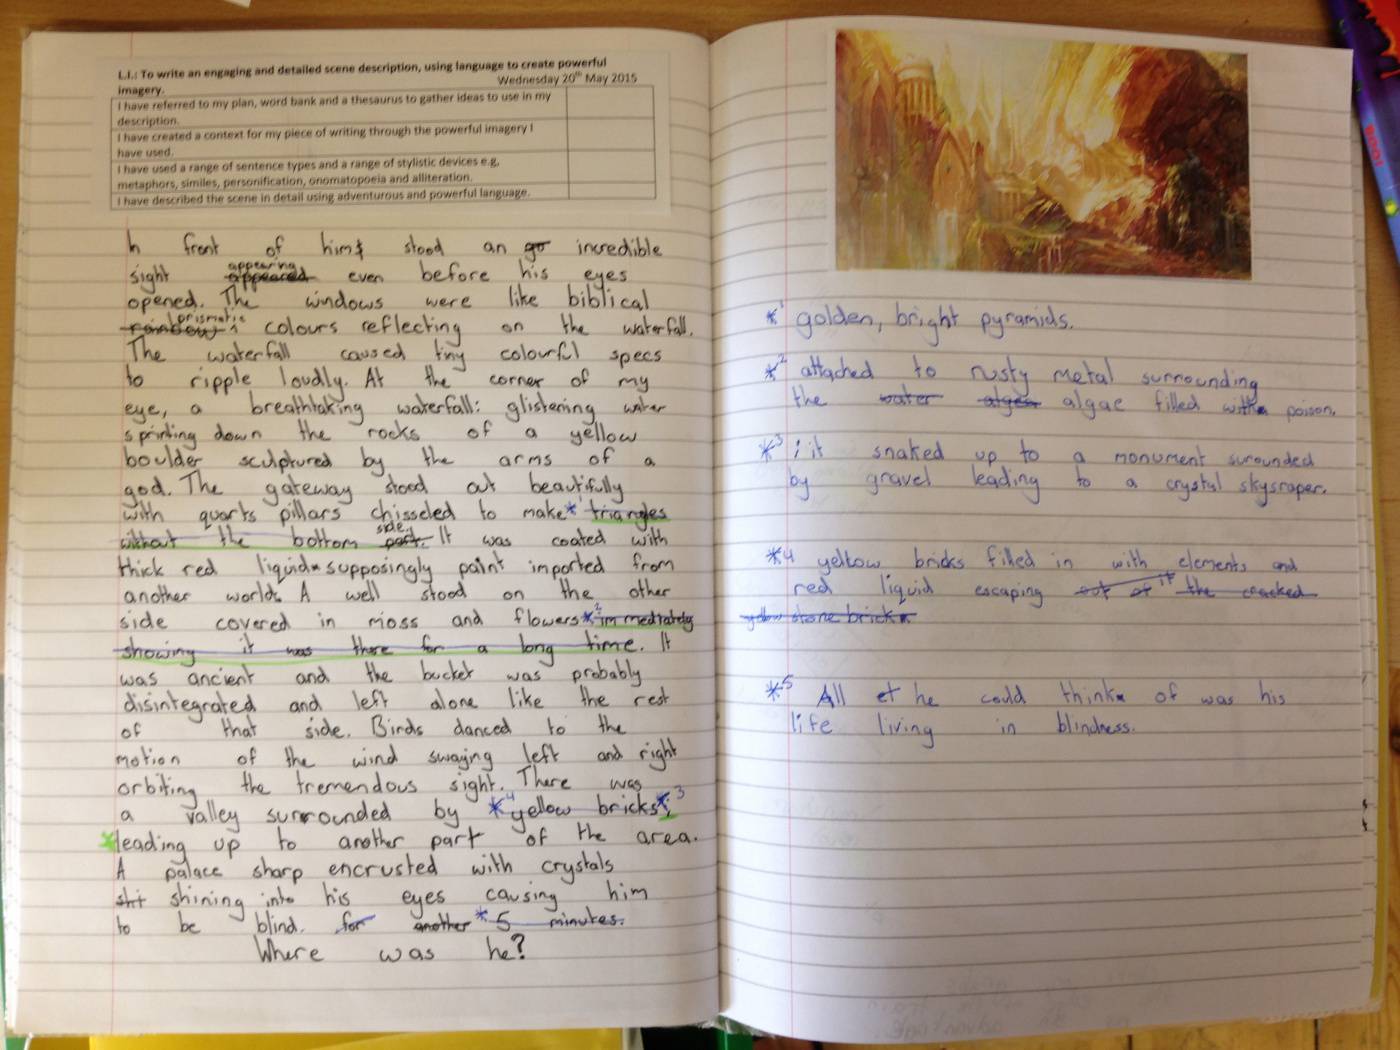 L.I.: To write an engaging and detailed scene description, using language to create powerful
imagery.
Wednesday 20th May 2015
I have referred to my plan, word bank and a thesaurus to gather ideas to use in my
description.
I have created a context for my piece of writing through the powerful imagery I
have used.
I have used a range of sentence types and a range of stylistic devices e.g.
metaphors, similes, personification, onomatopoeia and alliteration.
I have described the scene in detail using adventurous and powerful language.
In front of him stood an go incredible
appearing
sight appeared even before his eyes
opened. The windows were like biblical
prismatic
rainbow colours reflecting on the waterfall.
The waterfall caused tiny colourful specs
to ripple loudly. At the corner of my
eye, a breathtaking waterfall: glistening water
sprinting down the rocks of a yellow
boulder sculptured by the arms of a
god. The gateway stood out beautifully
with quarts pillars chisseled to make *1 triangles
side
without the bottom part. It was coated with
thick red liquid supposingly paint imported from
another world. A well stood on the other
side covered in moss and flowers *2 immediately
showing it was there for a long time. It
was ancient and the bucket was probably
disintegrated and left alone like the rest
of that side. Birds danced to the
motion of the wind swaying left and right
orbiting the tremendous sight. There was
a valley surrounded by *4 yellow bricks *3;
*leading up to another part of the area.
A palace sharp encrusted with crystals
sht shining into his eyes causing him
to be blind. for another *5 minutes.
Where was he?
*1 golden, bright pyramids.
*2 attached to rusty metal surrounding
the water algea algae filled with poison.
*3 ; it snaked up to a monument surounded
by gravel leading to a crystal skysraper.
*4 yellow bricks filled in with elements and
red liquid escaping out of it the cracked
yellow stone brick
*5 All et he could think of was his
life living in blindness.